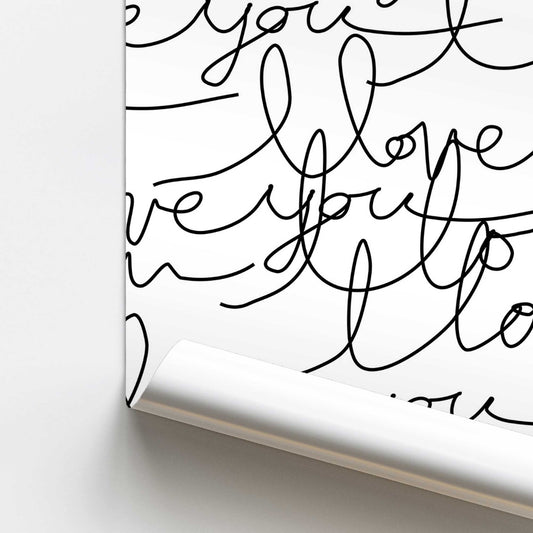 e you
I love
ve you lo
I lo
you